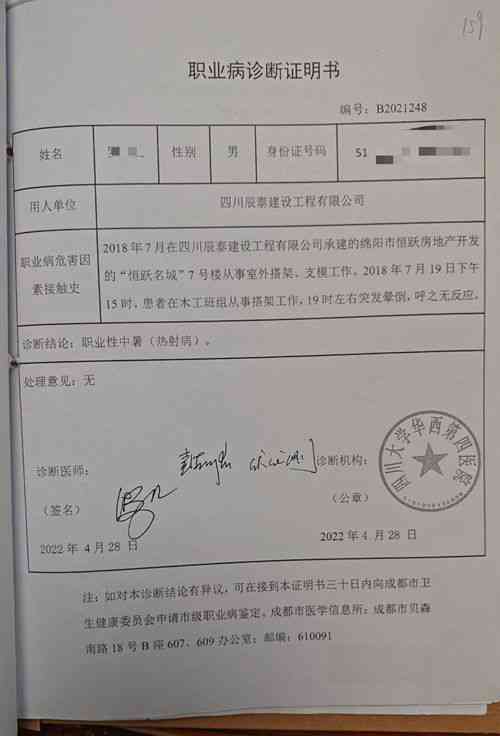 159
职业病诊断证明书
编号：B2021248
姓名 性别 男 身份证号码 51
用人单位 四川辰泰建设工程有限公司
职业病危害因素接触史
2018 年 7 月在四川辰泰建设工程有限公司承建的绵阳市恒跃房地产开发
的“恒跃名城”7 号楼从事室外搭架、支模工作。2018 年 7 月 19 日下午
15 时，患者在木工班组从事搭架工作，19 时左右突发晕倒，呼之无反应。
诊断结论：职业性中暑（热射病）。
处理意见：无
诊断医师： 诊断机构：
（签名） （公章）
四川大学华西第四医院
2022 年 4 月 28 日 2022 年 4 月 28 日
注：如对本诊断结论有异议，可在接到本证明书三十日内向成都市卫
生健康委员会申请市级职业病鉴定。成都市医学信息所：成都市贝森
南路 18 号 B 座 607、609 办公室；邮编：610091